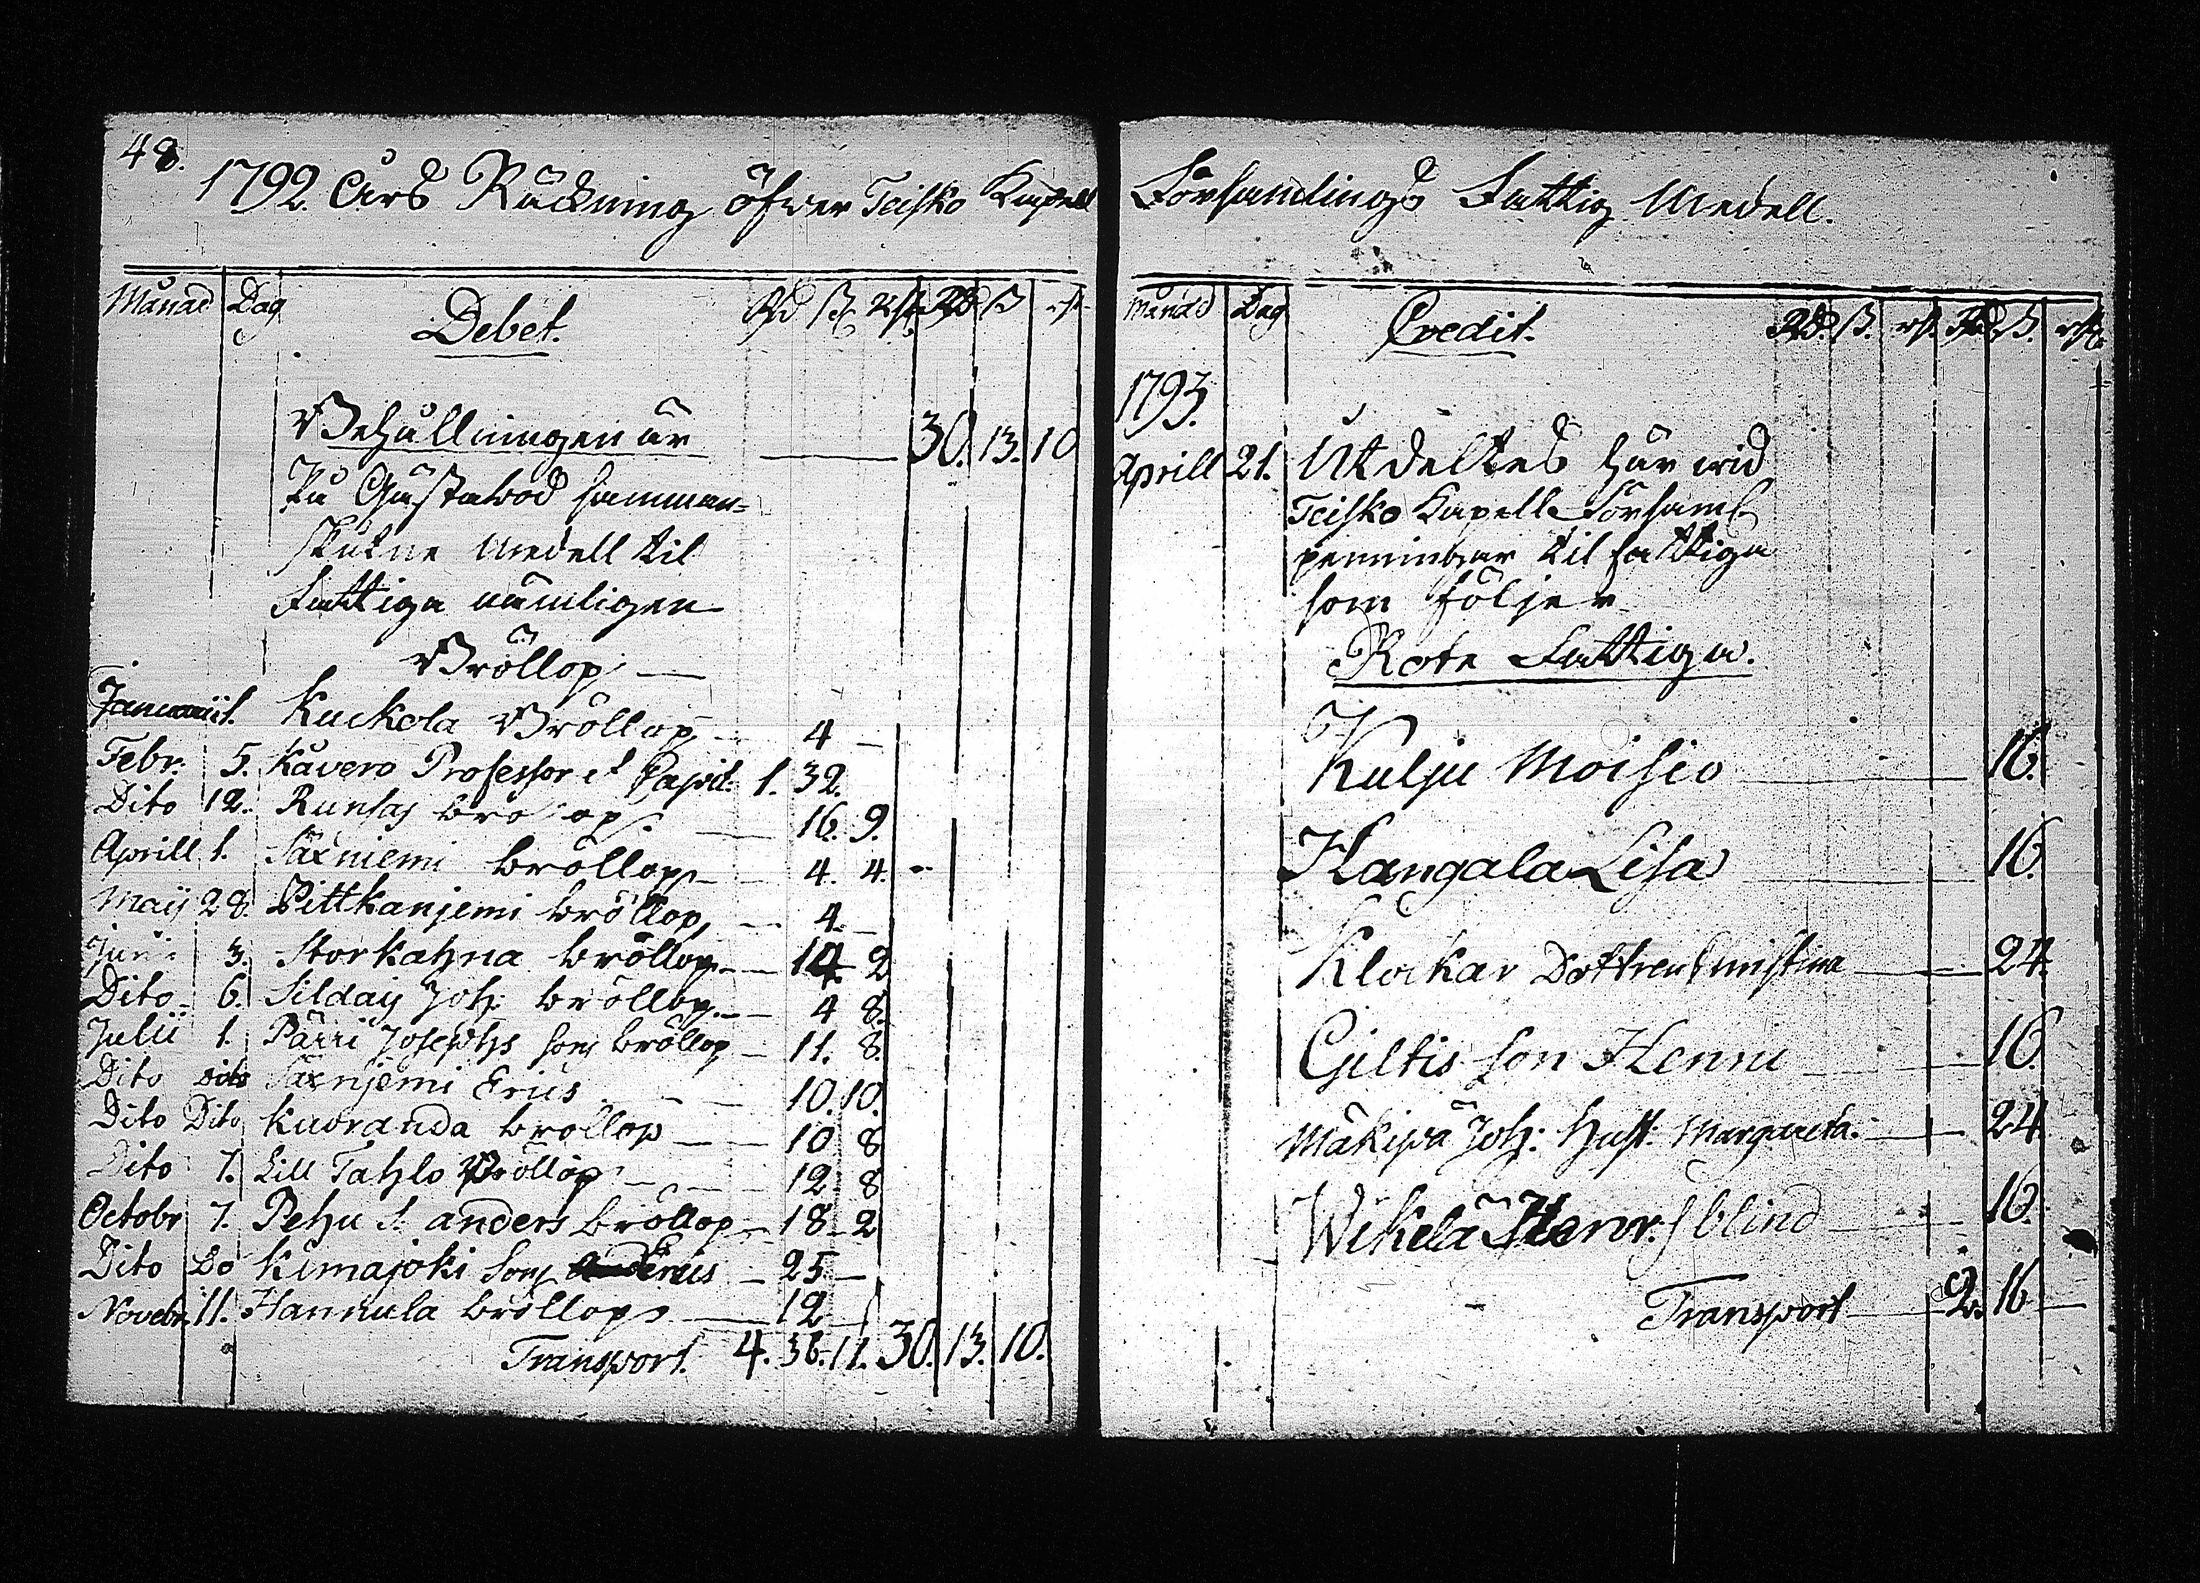 48.
1792. Års Räckning öfwer Teisko Kapell
Månad Dag Debet. Rd ß rst Rd ß rst
Behållningen är 30. 13. 10
På Gästabod samman=
skutne Medell til
Fattiga nämligen
Bröllop
Januarii 1. Kuckola Bröllop 4
Febr. 5. Kåvero Professor et 1. 32.
Dito 12. 16. 9.
Aprill 1. Säxniemi bröllop 4. 4.
Maij 28. Pittkanjemi bröllop 4.
Juni 3. Storkahna bröllop 14 2
Dito 6. Sildaij Joh: bröllop 4 8.
Julii 1. Pärri Josephs sons bröllop 11. 8.
Dito dito Säxnjemi Erius 10. 10.
Dito Dito Kuoranda bröllop 10 8
Dito 7. Lill Tahlo Bröllop 12 8
Octobr 7. Pehu S. anders bröllop 18 2
Dito Do Kimajoki Sons Erius 25
Novebr. 11. Hannula bröllop 12
Transport. 4. 36. 11. 30. 13. 10.
Församlings Fattig Medell.
Månad Dag Credit. Rd. ß. rst Rd ß. rst
1793.
Aprill 21. Utdeltes här wid
Teisko Kapell Församl
penningar til fattiga
som följer
Rote Fattiga.
Kulju Moisio 16.
Kangala Lisa 16.
Klockar Dottren Christina 24.
Giltis son Henric 16.
Mäkipä Joh: Hust: Margareta. 24.
Wikelä Henr: S blind 16.
Transport 2. 16